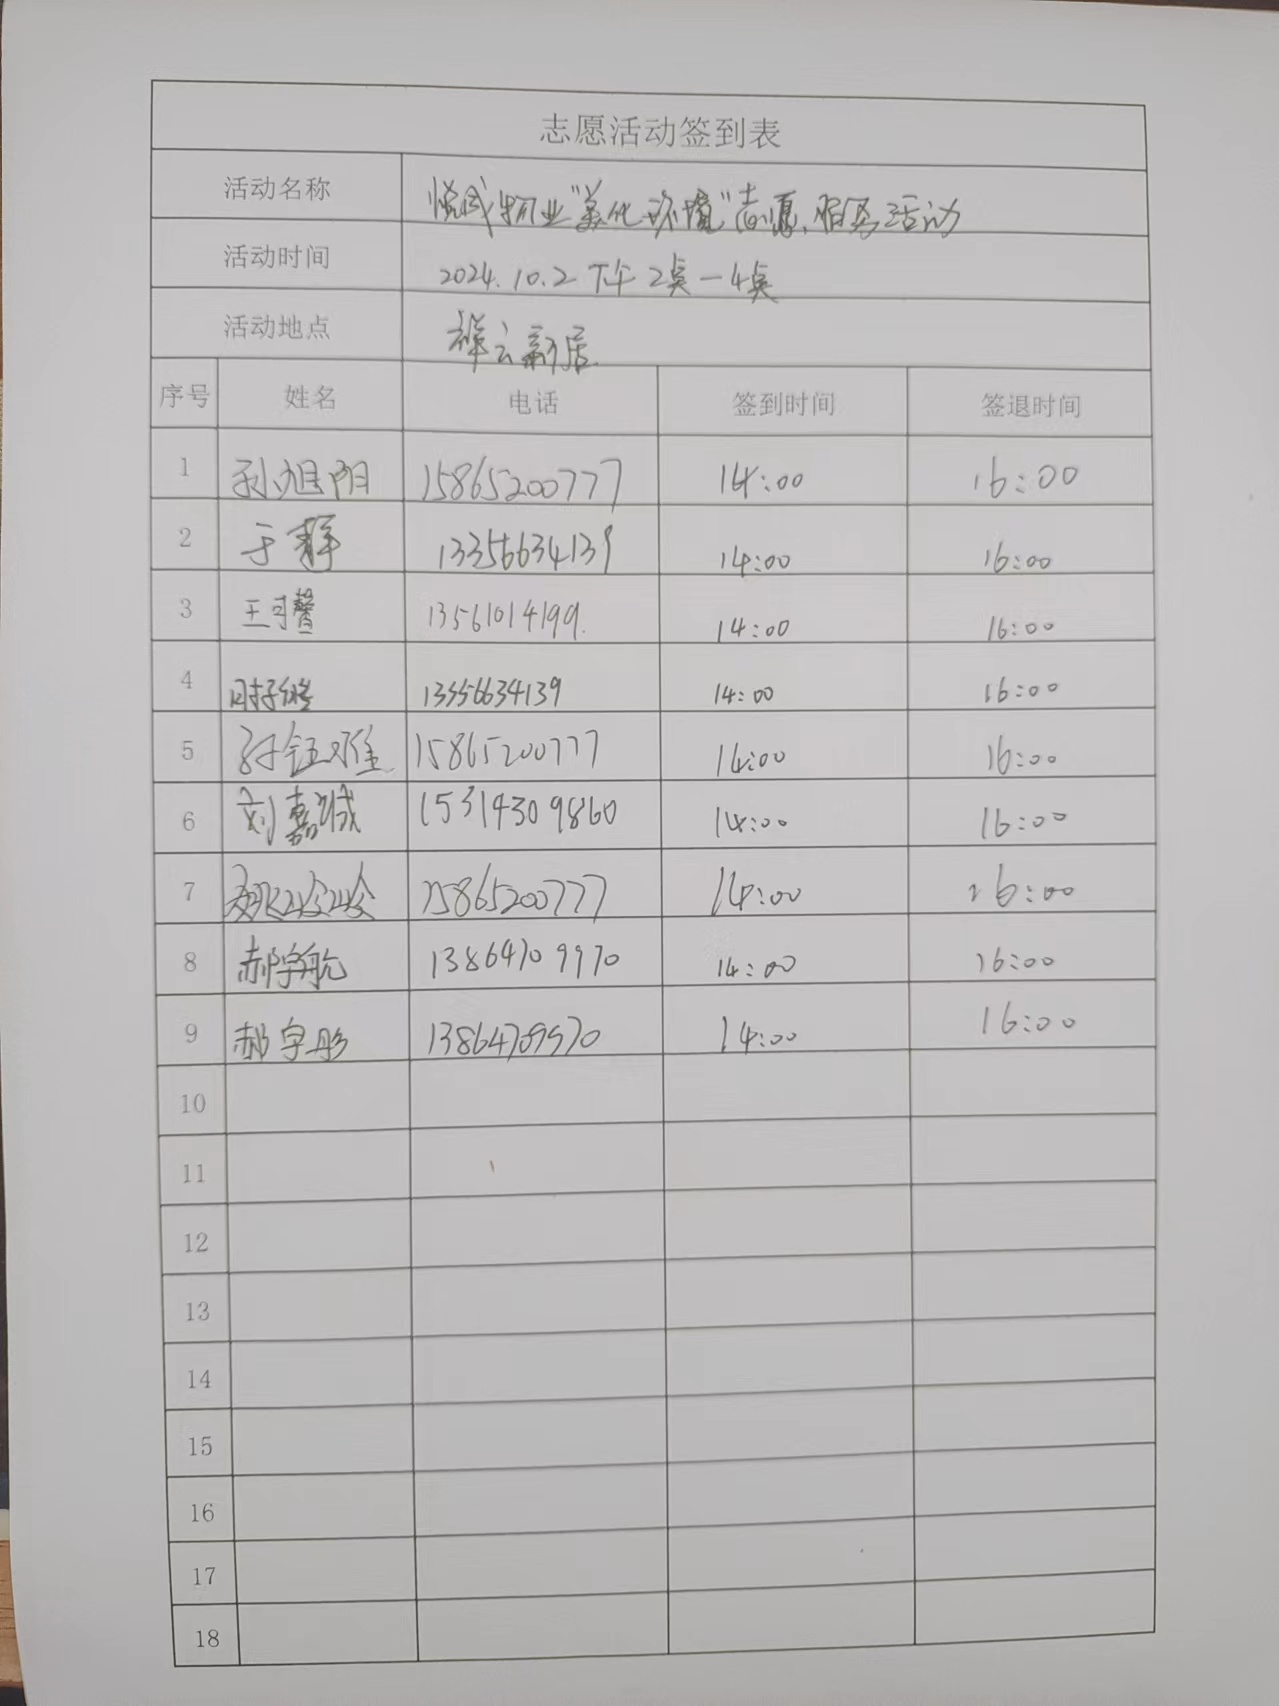 志愿活动签到表
活动名称 悦成物业"美化环境"志愿服务活动
活动时间 2024.10.2 下午 2点-4点
活动地点 祥云新居
序号 姓名 电话 签到时间 签退时间
1 孙旭阳 15865200777 14:00 16:00
2 于静 13356634139 14:00 16:00
3 王可馨 13561014199. 14:00 16:00
4 13356634139 14:00 16:00
5 15865200777 14:00 16:00
6 刘嘉诚 15314309860 14:00 16:00
7 15865200777 14:00 16:00
8 郝宇航 13864709970 14:00 16:00
9 郝宇彤 13864709970 14:00 16:00
10
11
12
13
14
15
16
17
18